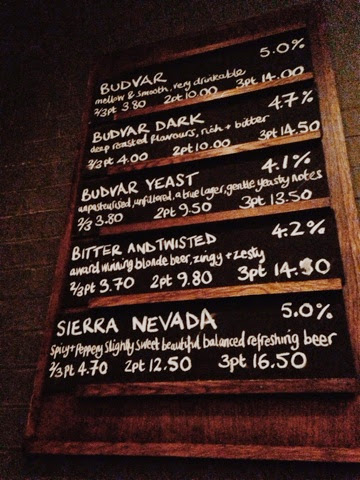 BUDVAR 5.0%
mellow & smooth, very drinkable
2/3pt 3.80 2pt 10.00 3pt 14.00
BUDVAR DARK 4.7%
deep roasted flavours, rich + bitter
2/3pt 4.00 2pt 10.00 3pt 14.50
BUDVAR YEAST 4.1%
unpasteurised, unfiltered, a true lager, gentle yeasty notes
2/3 3.80 2pt 9.50 3pt 13.50
BITTER AND TWISTED 4.2%
award winning blonde beer, zingy + zesty
2/3pt 3.70 2pt 9.80 3pt 14.30
SIERRA NEVADA 5.0%
Spicy + Peppery Slightly Sweet beautiful balanced refreshing beer
2/3pt 4.70 2pt 12.50 3pt 16.50